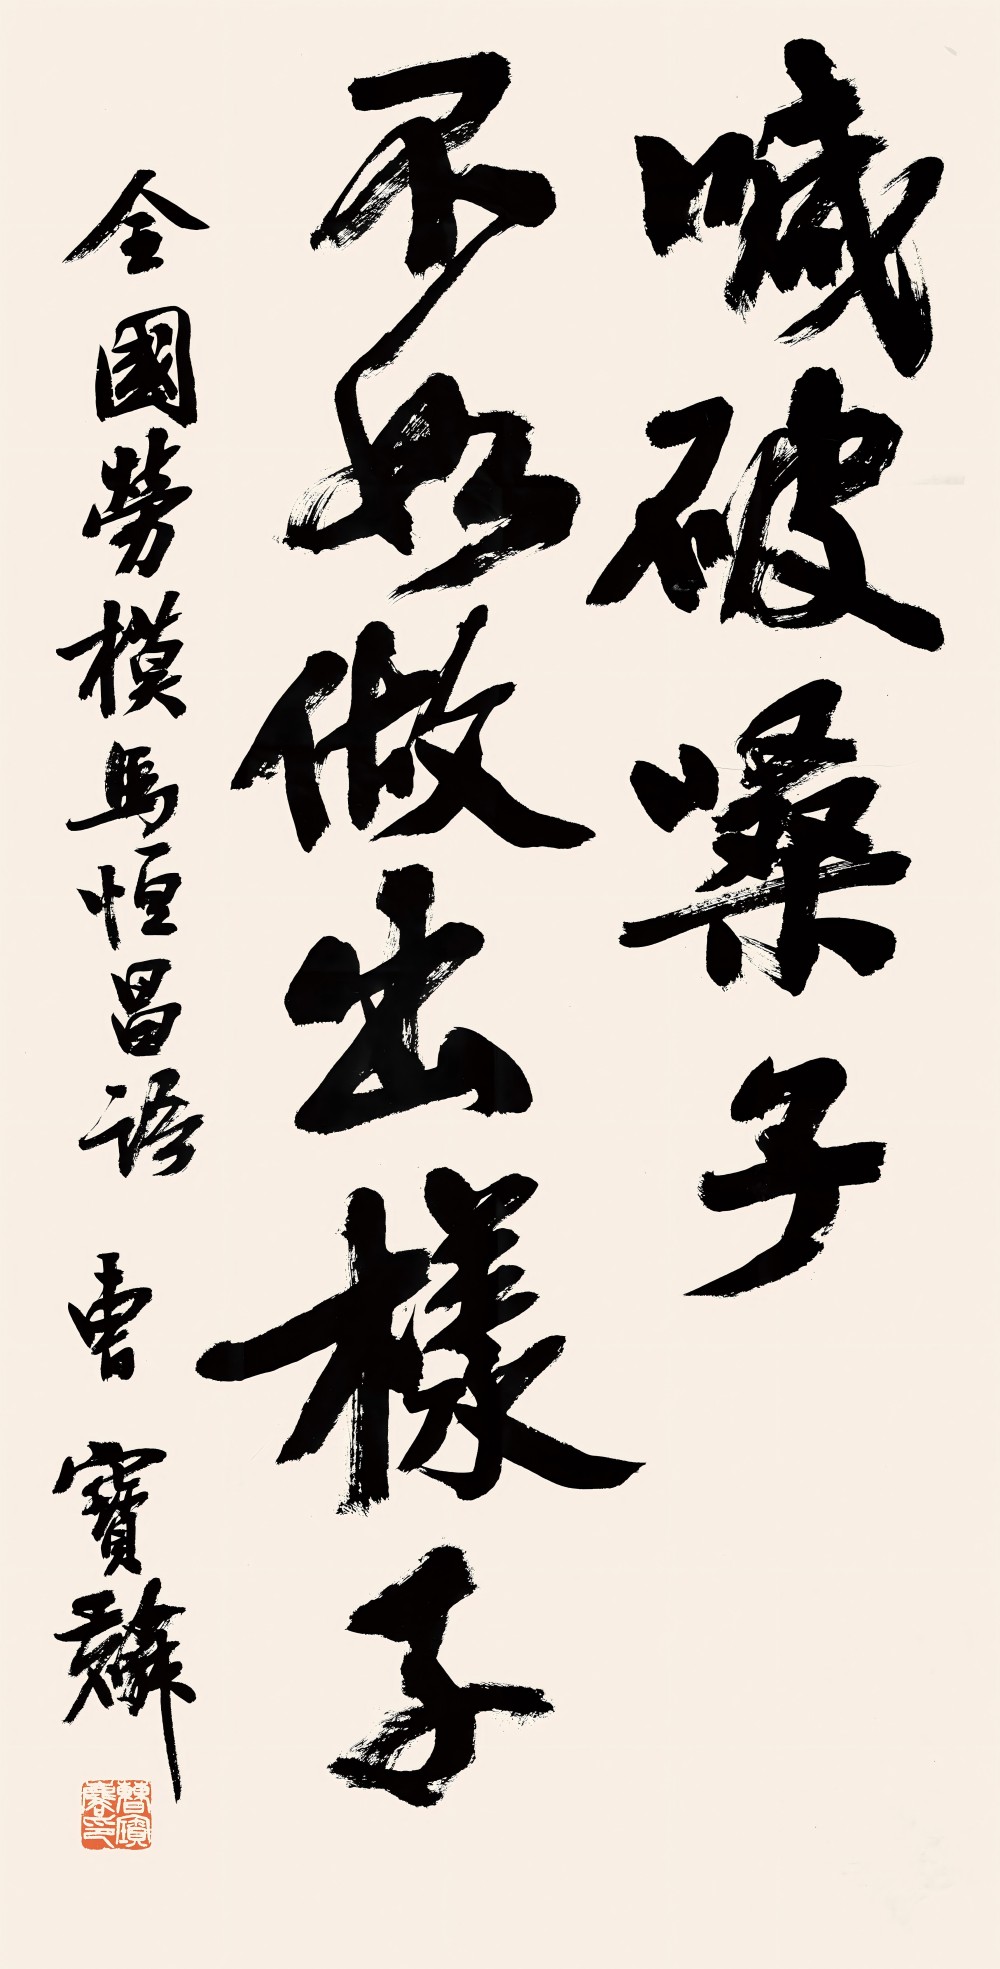 喊破嗓子
不如做出樣子
全國勞模馬恒昌語 曹寶麟
曹寶麟印